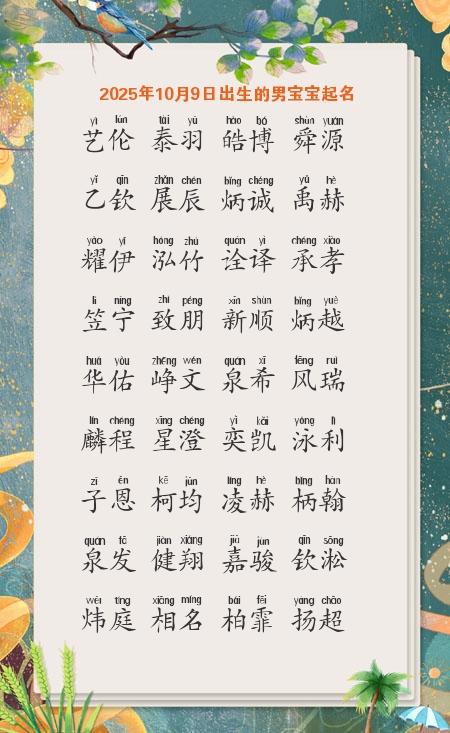 2025年10月9日出生的男宝宝起名
yì lún tài yǔ hào bó shùn yuán
艺伦 泰羽 皓博 舜源
yǐ qīn zhǎn chén bǐng chéng yǔ hè
乙钦 展辰 炳诚 禹赫
yào yī hóng zhú quán yì chéng xiào
耀伊 泓竹 诠译 承孝
lì níng zhì péng xīn shùn bǐng yuè
笠宁 致朋 新顺 炳越
huá yòu zhēng wén quán xī fēng ruì
华佑 峥文 泉希 风瑞
lín chéng xīng chéng yì kǎi yǒng lì
麟程 星澄 奕凯 泳利
zǐ ēn kē jūn líng hè bǐng hàn
子恩 柯均 凌赫 柄翰
quán fā jiàn xiáng jiā jùn qīn sōng
泉发 健翔 嘉骏 钦淞
wěi tíng xiāng míng bǎi fēi yáng chāo
炜庭 相名 柏霏 扬超